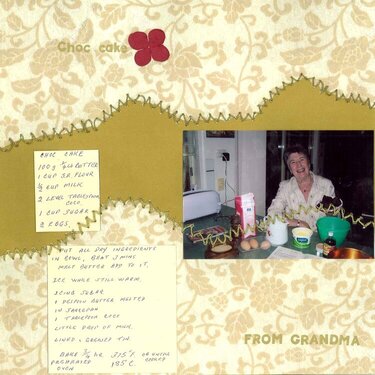 Choc cake
CHOC CAKE
100g BUTTER
1 CUP SR FLOUR
½ CUP MILK
2 LEVEL TABLESPOON
COCO
1 CUP SUGAR
2 EGGS
PUT ALL DRY INGREDIENTS
IN BOWL, BEAT 3 MINS
MELT BUTTER ADD TO IT.
ICE WHILE STILL WARM.
ICING SUGAR
1 DESPOON BUTTER MELTED
IN SAUCEPAN
1 TABLESPOON COCO
LITTLE DROP OF MILK.
LINED & GREASED TIN
BAKE ¾ hr 375°F OR UNTIL
PREHEATED 185°C. COOKED
OVEN
FROM GRANDMA